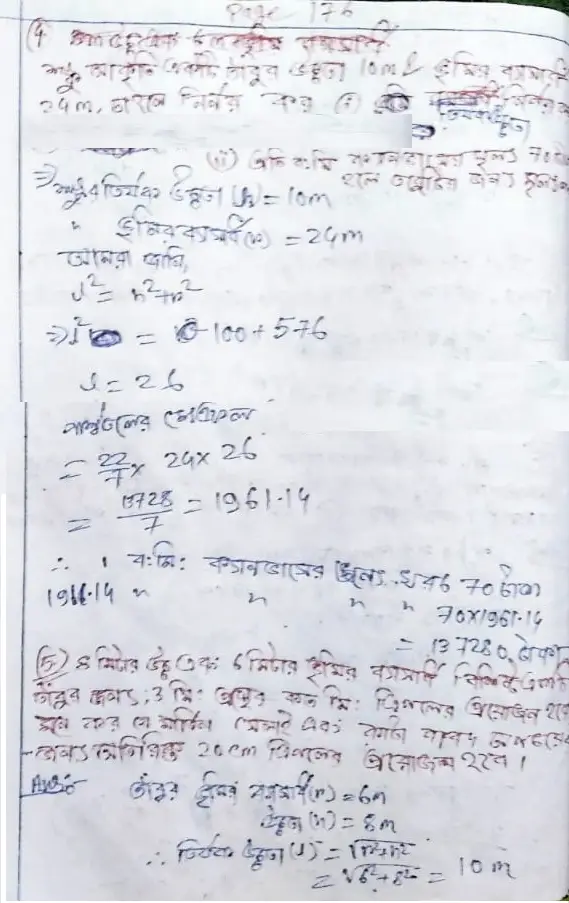 Page 176
(4
শঙ্কু আকৃতি একটি তাঁবুর উচ্চতা 10m ও ভূমির ব্যাসার্ধ
24m, তাহলে নির্ণয় কর (i) তির্যক উচ্চতা নির্ণয়
(ii) প্রতি ব:মি কেনভাসের মূল্য 70 টাকা
হলে
⇒ শঙ্কুর তির্যক উচ্চতা (h) = 10m
" ভূমির ব্যাসার্ধ (r) = 24m
আমরা জানি,
l² = h²+r²
⇒ l² = 100 + 576
l = 26
পার্শ্বতলের ক্ষেত্রফল
= 22/7 × 24 × 26
= 13728/7 = 1961.14
∴ 1 ব:মি: ক্যানভাসের মূল্য খরচ 70 টাকা
1961.14 " " " " 70×1961.14
= 137280 টাকা
(5) 8 মিটার উচ্চ এবং 6 মিটার ভূমির ব্যাসার্ধ বিশিষ্ট একটি
তাঁবুর জন্য 3 মি: প্রস্থের কত মি: ত্রিপলের প্রয়োজন হবে
মনে কর যে সেলাই এবং কাটা বাবদ
জন্য অতিরিক্ত 20cm ত্রিপলের প্রয়োজন হবে।
Ans:- তাঁবুর ভূমির ব্যাসার্ধ (r) = 6m
উচ্চতা (h) = 8m
∴ তির্যক উচ্চতা (l) = √r²+h²
= √6²+8² = 10m